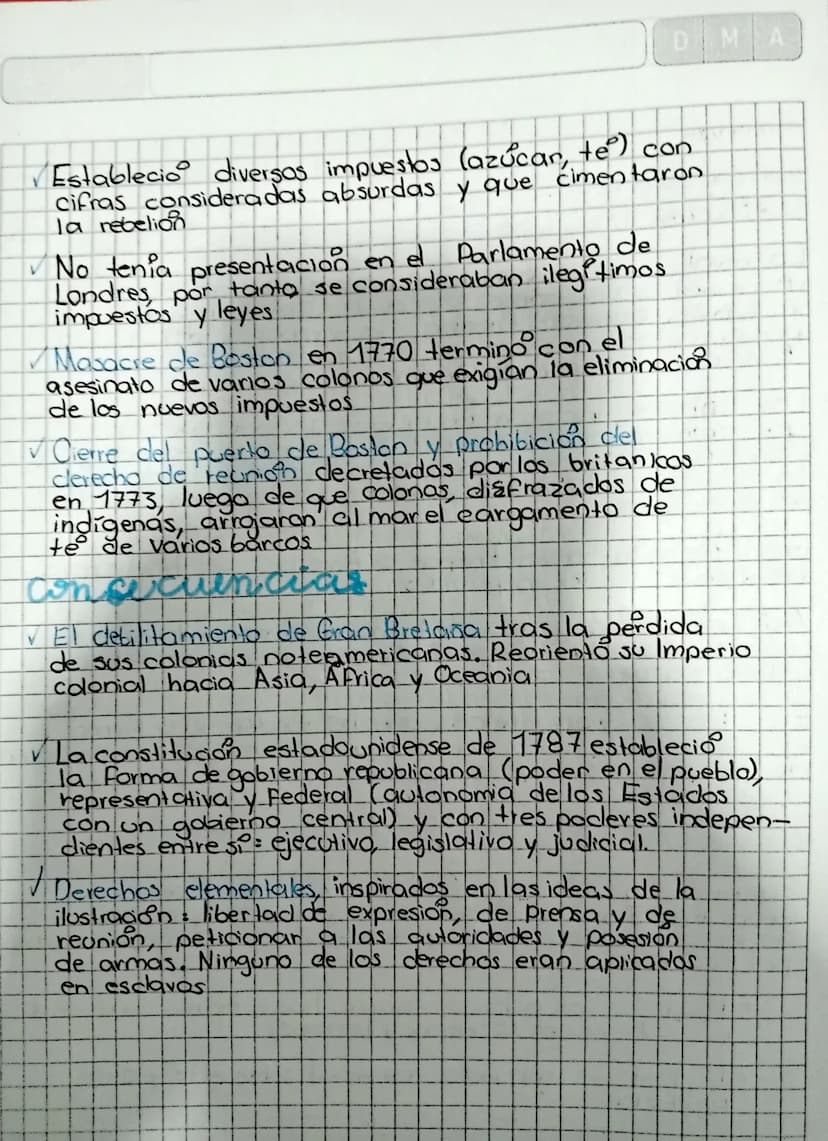 D M A
✓ Estableció diversos impuestos (azúcar, té) con
cifras consideradas absurdas y que cimentaron
la rebelión
✓ No tenía presentación en el Parlamento de
Londres, por tanto se consideraban ilegítimos
impuestos y leyes
✓ Masacre de Boston en 1770 terminó con el
asesinato de varios colonos que exigían la eliminación
de los nuevos impuestos
✓ Cierre del puerto de Boston y prohibición del
derecho de reunión decretados por los britanicos
en 1773, luego de que colonos, disfrazados de
indígenas, arrojaron al mar el cargamento de
té de varios barcos
Consecuencias
✓ El debilitamiento de Gran Bretaña tras la pérdida
de sus colonias noteamericanas. Reorientó su Imperio
colonial hacia Asia, África y Oceania
✓ La constitución estadounidense de 1787 estableció
la forma de gobierno republicana (poder en el pueblo),
representativa y Federal (autonomia de los Estados
con un gobierno central) y con tres poderes indepen-
dientes entre sí: ejecutivo, legislativo y judicial.
✓ Derechos elementales, inspirados en las ideas de la
ilustración: libertad de expresión, de prensa y de
reunión, peticionar a las autoridades y posesión
de armas. Ninguno de los derechos eran aplicados
en esclavos